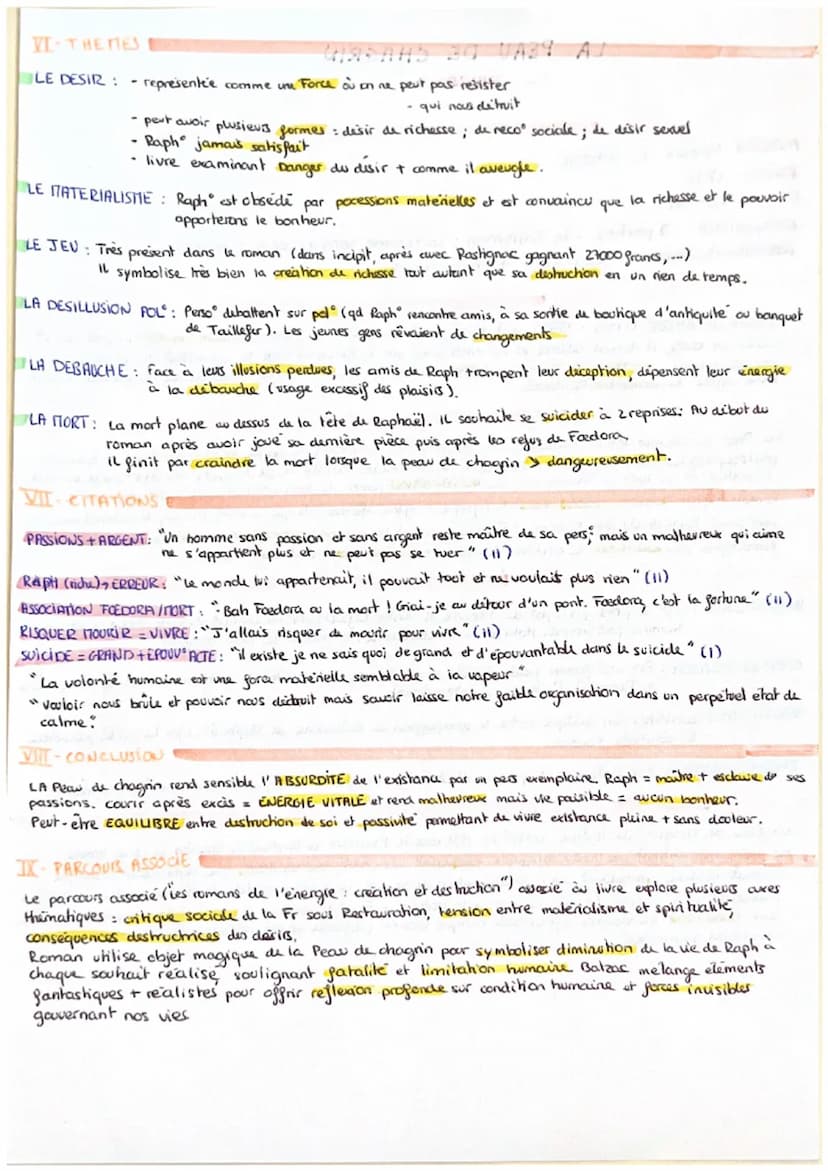 VI - THEMES
LE DESIR : - représentée comme une Force où on ne peut pas resister
- qui nous détruit
- peut avoir plusieurs formes : désir de richesse ; de reco° sociale ; de désir sexuel
- Raph° jamais satisfait
- livre examinant Danger du désir + comme il aveugle.
LE MATERIALISME : Raph° est obsédé par pocessions matérielles et est convaincu que la richesse et le pouvoir
apporterons le bonheur.
LE JEU : Très présent dans le roman (dans incipit, après avec Rastignac gagnant 27000 francs, ...)
Il symbolise très bien la création de richesse tout autant que sa destruction en un rien de temps.
LA DESILLUSION POL° : Perso° débattent sur pol° (qd Raph° rencontre amis, à sa sortie de boutique d'antiquité ou banquet
de Taillefer). Les jeunes gens rêvaient de changements
LA DEBAUCHE : Face à leurs illusions perdues, les amis de Raph trompent leur déception, dépensent leur énergie
à la débauche (usage excessif des plaisirs).
LA MORT : La mort plane au dessus de la tête de Raphaël. Il souhaite se suicider à 2 reprises : Au début du
roman après avoir joué sa dernière pièce puis après les refus de Foedora,
il finit par craindre la mort lorsque la peau de chagrin ↘ dangeureusement.
VII - CITATIONS
PASSIONS + ARGENT : "Un homme sans passion et sans argent reste maître de sa pers ; mais un malheureux qui aime
ne s'appartient plus et ne peut pas se tuer" (II)
RAPH (riche) → ERREUR : "Le monde lui appartenait, il pouvait tout et ne voulais plus rien" (II)
ASSOCIATION FOEDORA / MORT : "Bah Foedora ou la mort ! Criai-je au détour d'un pont. Foedora, c'est la fortune" (II)
RISQUER MOURIR = VIVRE : "J'allais risquer de mourir pour vivre" (II)
SUICIDE = GRAND + EPOUV° ACTE : "il existe je ne sais quoi de grand et d'épouvantable dans le suicide" (I)
"La volonté humaine est une force matérielle semblable à la vapeur"
"Vouloir nous brûle et pouvoir nous détruit mais savoir laisse notre faible organisation dans un perpétuel état de
calme."
VIII - CONCLUSION
LA Peau de chagrin rend sensible l'ABSURDITE de l'existance par un pers exemplaire, Raph = maître + esclave de ses
passions. courir après excès = ENERGIE VITALE et rend malheureux mais vie paisible = aucun bonheur.
Peut-être EQUILIBRE entre destruction de soi et passivité permettant de vivre existance pleine + sans douleur.
IX - PARCOURS ASSOCIE
Le parcours associé ("les romans de l'énergie : création et destruction") associé au livre explore plusieurs axes
thématiques : critique sociale de la Fr sous Restauration, tension entre matérialisme et spiritualité,
conséquences destructrices des désirs,
Roman utilise objet magique de la Peau de chagrin pour symboliser diminution de la vie de Raph à
chaque souhait réalisé, soulignant fatalité et limitation humaine Balzac mélange éléments
fantastiques + réalistes pour offrir reflexion profonde sur condition humaine et forces invisibles
gouvernant nos vies